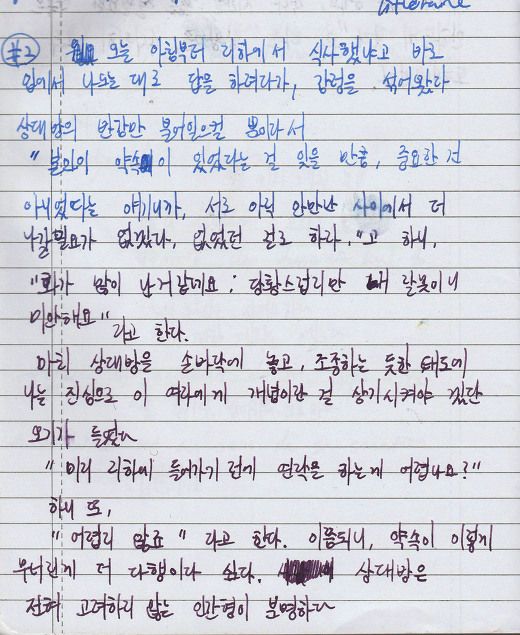 literane
#2) 오늘 아침부터 지하에서 식사했냐고 바로
입에서 나오는 대로 답을 하려다가, 감정을 섞어봤다
상대방의 반감만 불러일으킬 뿐이라서
"본인이 약속이 있었다는 걸 잊을 만큼, 중요한 건
아니었다는 얘기니까, 서로 아직 안만난 사이에서 더
나갈필요가 없겠다, 없었던 걸로 하라."고 하니,
"화가 많이 난거 같네요; 당황스럽지만 내 잘못이니
미안해요" 라고 한다.
마치 상대방을 손바닥에 놓고, 조종하는 듯한 태도에
나는 진심으로 이 여자에게 개념이란 걸 상기시켜야 겠단
오기가 들었다
"미리 지하에 들어가기 전에 연락을 하는게 어렵나요?"
하니 또,
"어렵지 않죠" 라고 한다. 이쯤되니, 약속이 이렇게
무너진게 더 다행이다 싶다. 상대방은
전혀 고려하지 않는 인간형이 분명하다